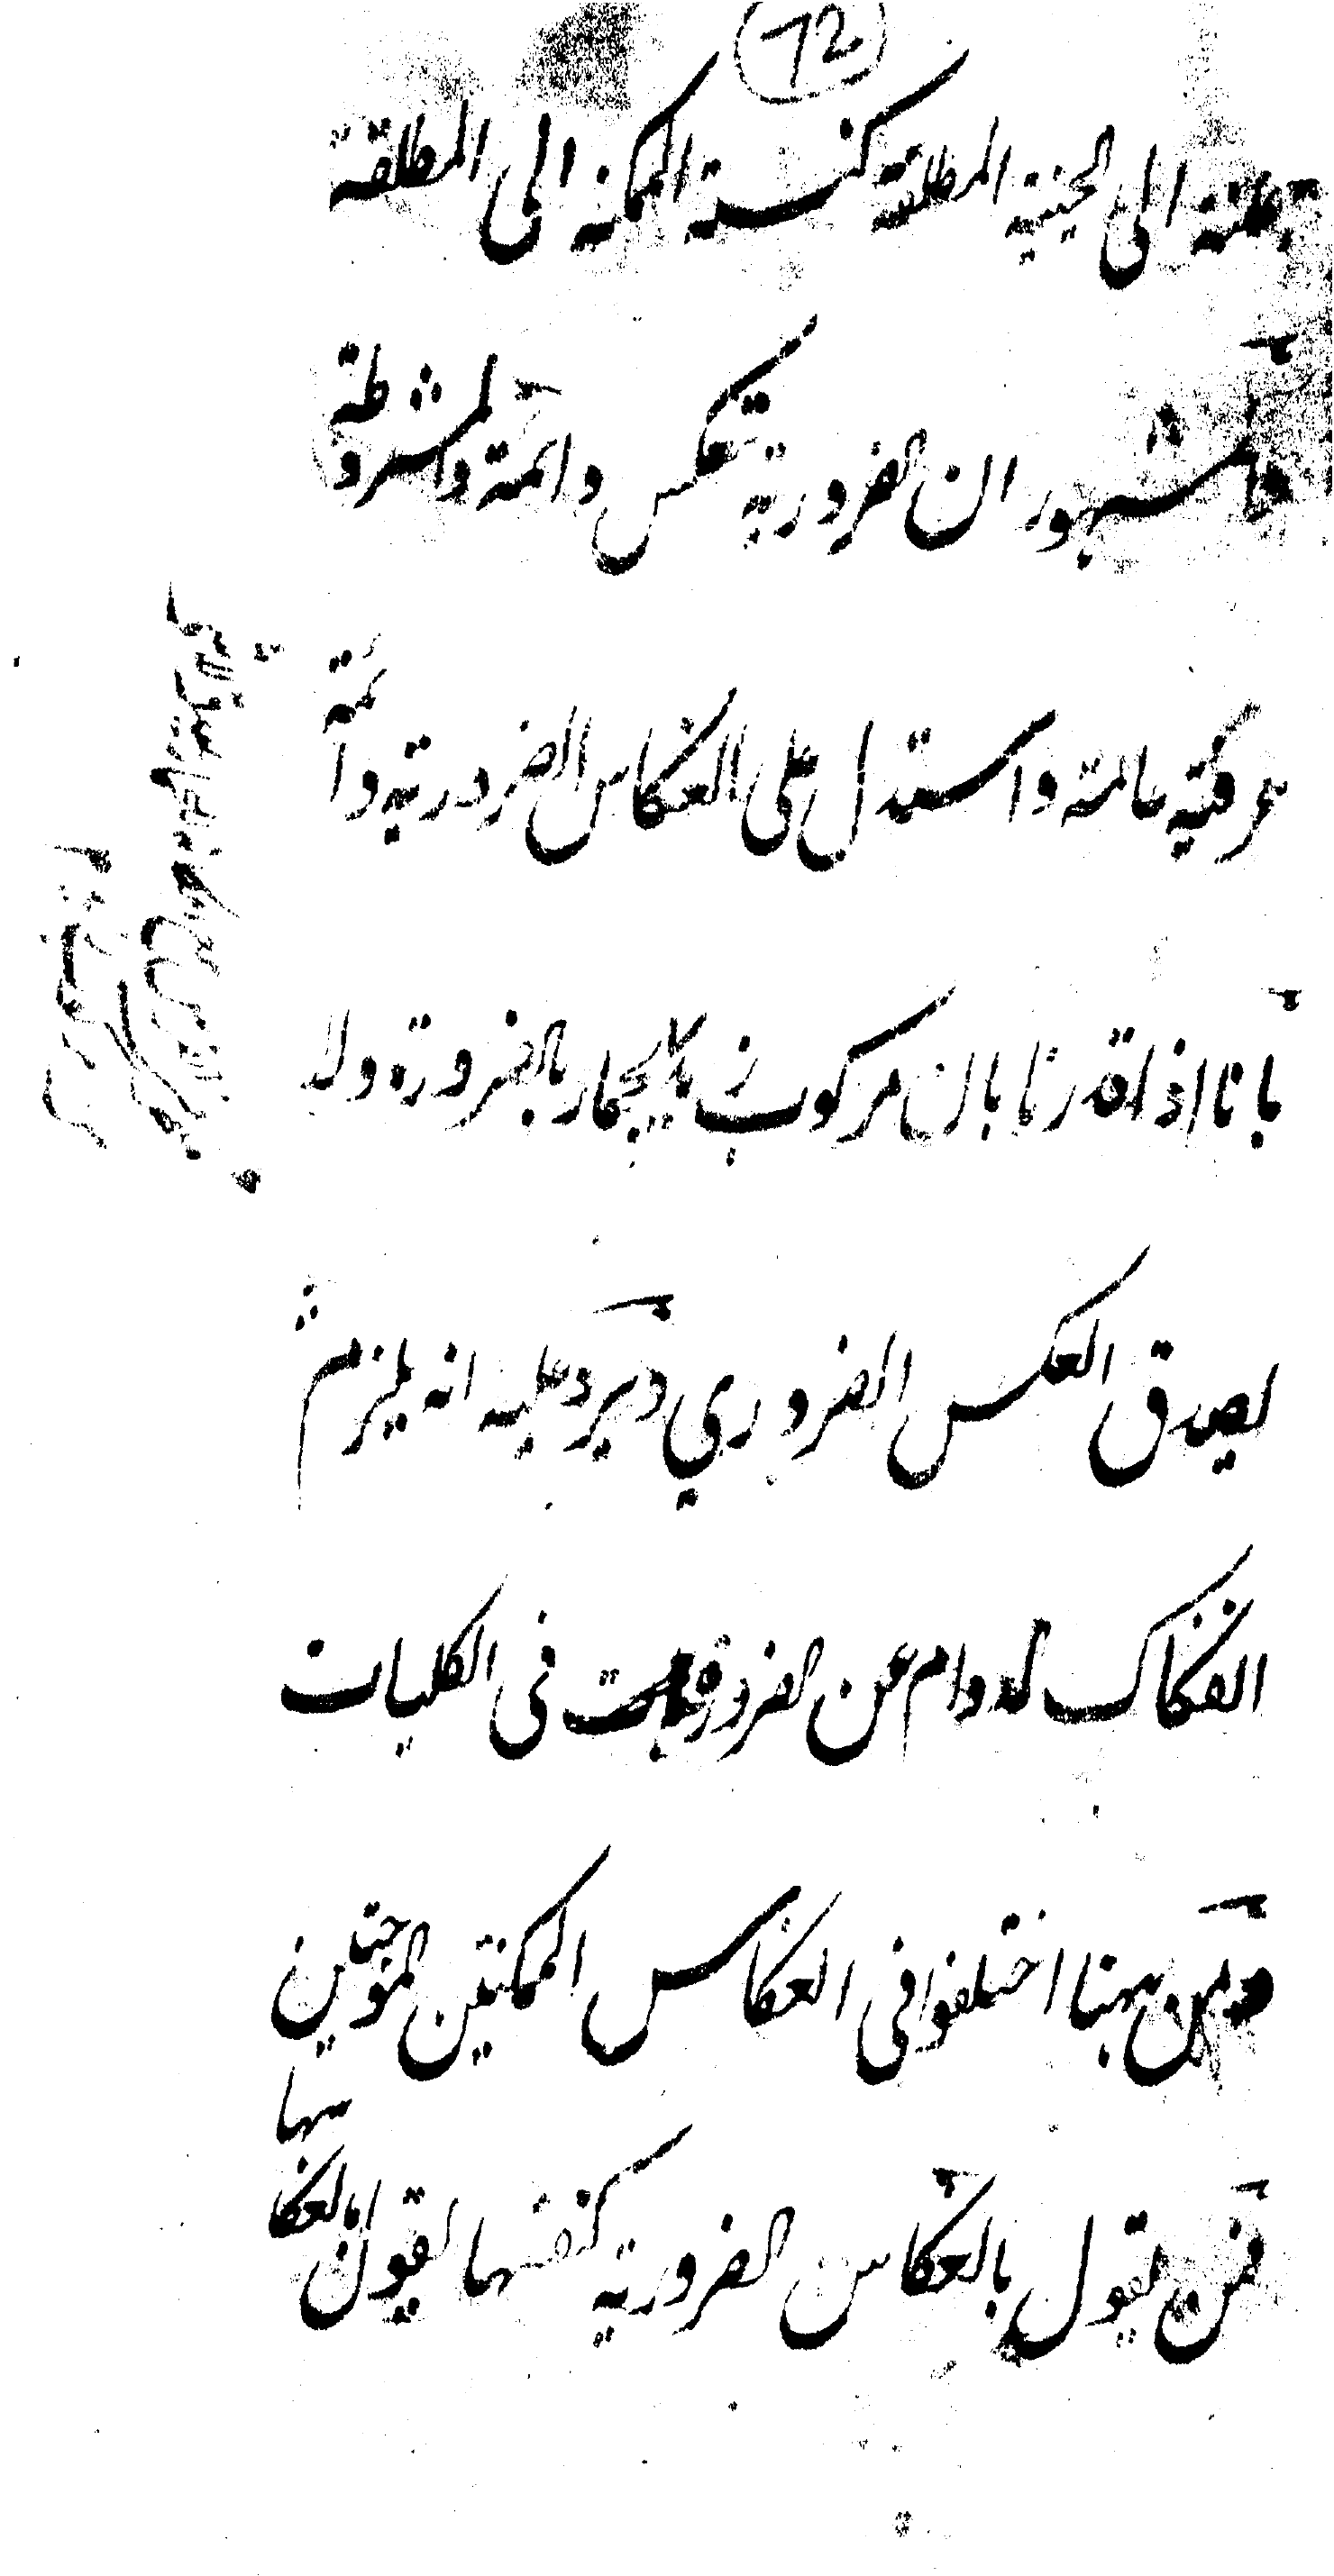 72
ممكنة الى الحينية المطلقة كنسبة الممكنة الى المطلقة
فالمشهور ان الضرورية تنعكس دائمة والمشروطة
عرفية عامة واستدل على انعكاس الضرورية دائمة
بانا اذا قدرنا بان مركوب زيد الحمار بالضرورة ولا
يصدق العكس الضروري ويرد عليه انه يلزم ثم
انفكاك الدوام عن الضرورة في الكليات
ومن ههنا اختلفوا في انعكاس الممكنتين الموجبتين
فمن يقول بانعكاس الضرورية كنفسها يقول بانعكاسها